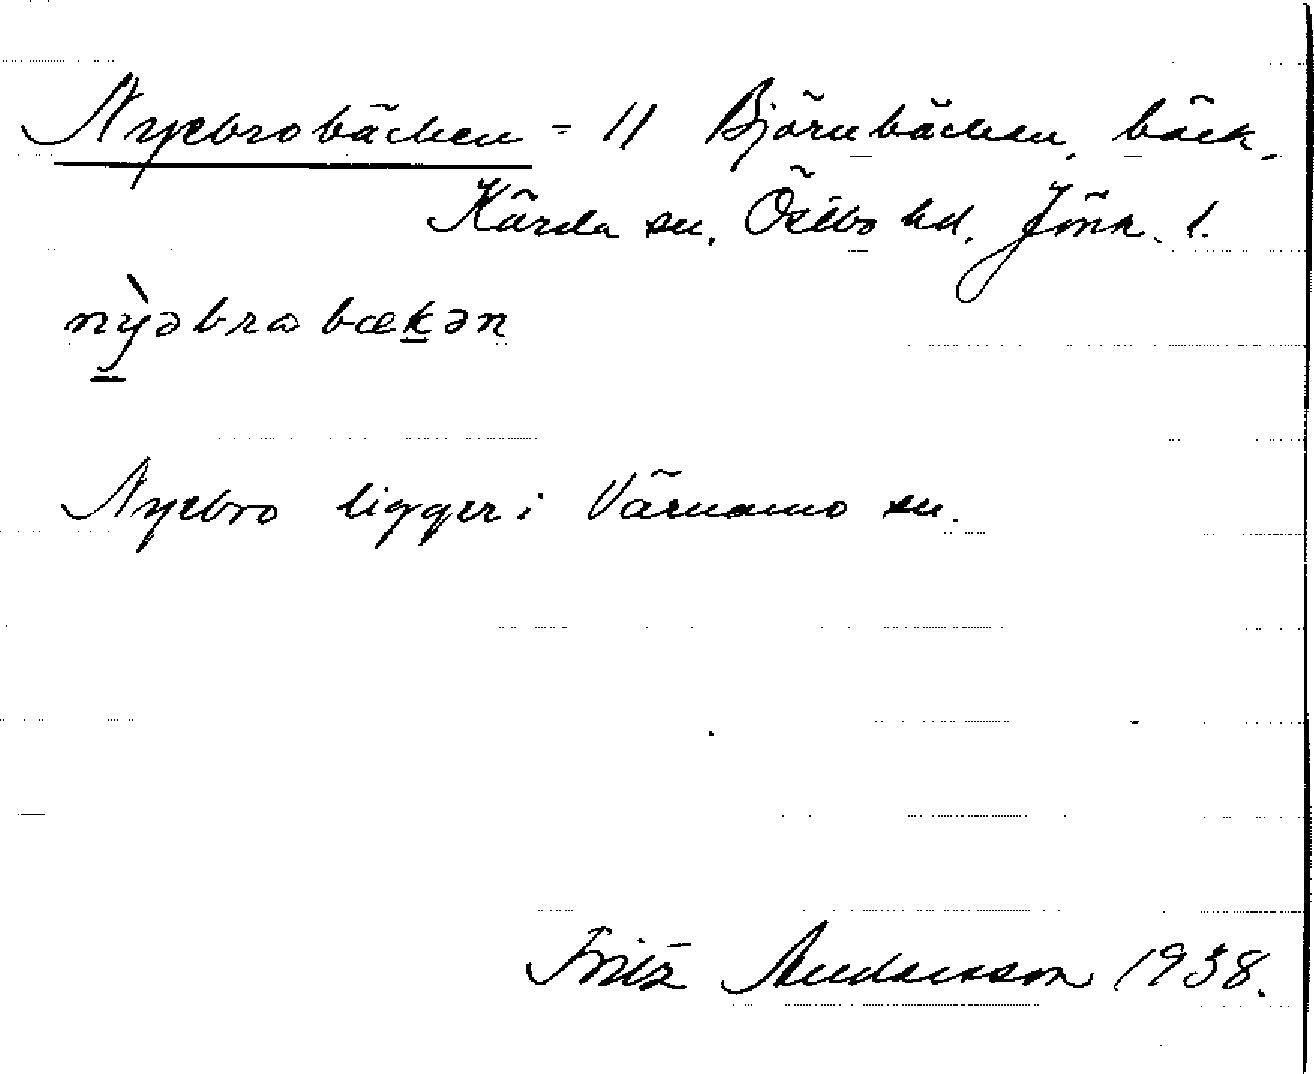 Nyebrobäcken = 11 Björnbäcken, bäck.
Kärda sn, Östbo hd, Jönk. l.
nỳəbrobækən
Nyebro ligger i Värnamo sn.
Fritz Andersson 1938.